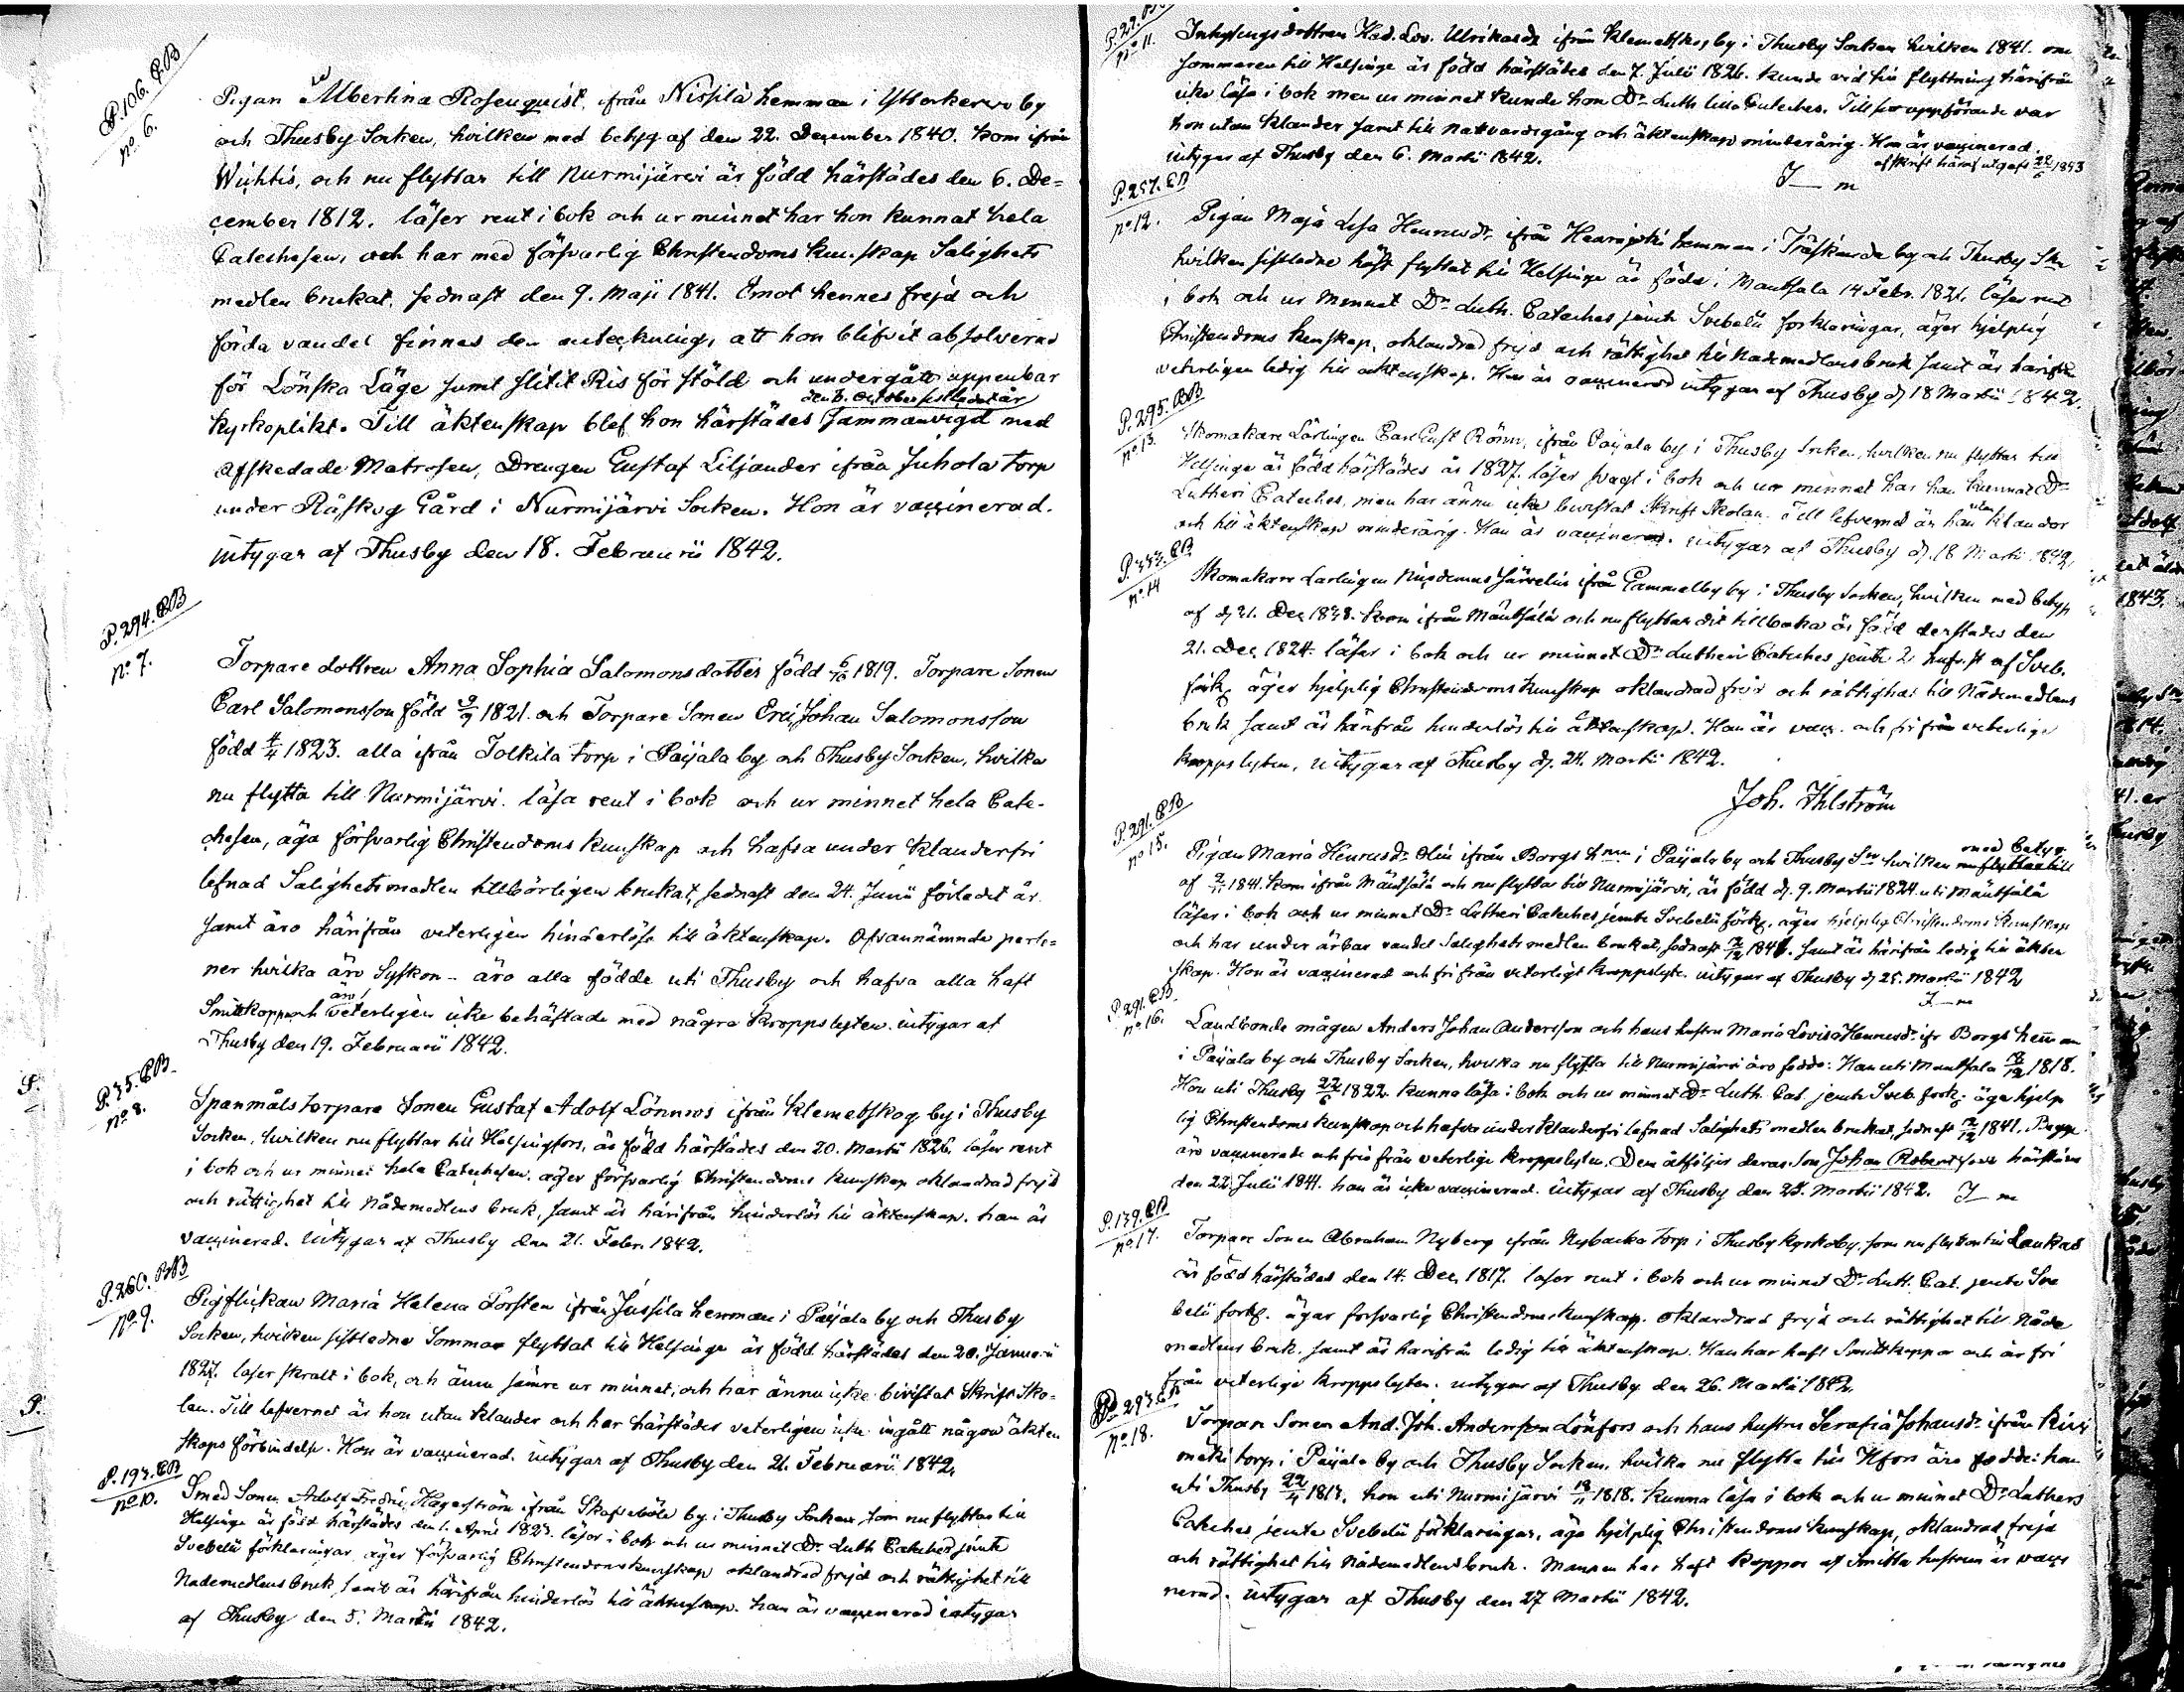 P. 106. CB
no. 6.
Pigan Albertina Rosenquist, ifrån Nissilä hemman i Ytterkervo by
och Thusby Socken, hvilken med betyg af den 22. December 1840. kom ifrån
Wichtis, och nu flyttar till Nurmijärvi är född härstädes den 6. De=
cember 1812. läser rent i bok och ur minnet har hon kunnat hela
Catechesen, och har med försvarlig Christendoms kunskap Salighets
medlen brukat, sednast den 9. Maji 1841. Emot hennes frejd och
förda vandel finnes den anteckning, att hon blifvit absolverad
för Lönska Läge samt slitit Ris för stöld och undergått uppenbar
den 3. October sistledet år
kyrkoplikt. Till äktenskap blef hon härstädes sammanvigd med
afskedade Matrosen, Drengen Gustaf Liljander ifrån Juhola torp
under Råskog Gård i Nurmijärvi Socken. Hon är vaccinerad.
intygar af Thusby den 18. Februarii 1842.
P. 294. CB
no. 7.
Torpare dottren Anna Sophia Salomonsdotter född 6/10 1819. Torpare Sonen
Carl Salomonsson född 9/9 1821. och Torpare Sonen Eric Johan Salomonsson
född 4/4 1823. alla ifrån Tolkila torp i Paijala by och Thusby Socken, hvilka
nu flytta till Nurmijärvi. läsa rent i bok och ur minnet hela Cate-
chesen, äga försvarlig Christendoms kunskap och hafva under klanderfri
lefnad Salighetsmedlen tillbörligen brukat, sednast den 24. Junii förledet år
samt äro härifrån veterligen hinderlösa till äktenskap. Ofvannämnde perso=
ner hvilka äro Syskon - äro alla födde uti Thusby och hafva alla haft
äro
Smittkoppor och veterligen icke behäftade med några kroppslyten. intygar af
Thusby den 19. Februarii 1842.
P. 35. CB
no. 8.
Spanmåls torpare Sonen Gustaf Adolf Lönnroos ifrån Klemetskog by i Thusby
Socken, hvilken nu flyttar till Helsingfors, är född härstädes den 20. Martii 1826. läser rent
i bok och ur minnet hela Catechesen. äger försvarlig Christendoms kunskap oklandrad frejd
och rättighet till Nådemedlens bruk, samt är härifrån hinderlös till äktenskap. han är
vaccinerad. intygar af Thusby den 21. Febr. 1842.
P. 260. BB
No. 9.
Pigflickan Maria Helena Törsten ifrån Jussila hemman i Paijala by och Thusby
Socken, hvilken sistledne Sommar flyttat till Helsinge är född härstädes den 20. Januarii
1827. läser skralt i bok, och ännu sämre ur minnet, och har ännu icke bivistat Skrift Sko=
lan. Till lefvernet är hon utan klander och har härstädes veterligen icke ingått någon äkten
skaps förbindelse. Hon är vaccinerad. intygar af Thusby den 21. Februarii 1842.
P. 193. CB
no. 10.
Smed Sonen Adolf Fredric Hagerström ifrån Skafvaböle by i Thusby Socken, som nu flyttar till
Helsinge är född härstädes den 1. April 1823. läser i bok och ur minnet Dr. Luth. Catechis jemte
Svebelii förklaringar, äger försvarlig Christendomskunskap oklandrad frejd och rättighet till
Nademedlens bruk samt är härifrån hinderlös till äktenskap. han är vaccinerad intygar
af Thusby den 5. Martii 1842.
P. 22.
no. 11.
Inhysingsdottren Hed. Lov. Ulricasdr ifrån Klemetskog by i Thusby Socken hvilken 1841. om
sommaren till Helsinge är född härstädes den 7. Julii 1826. kunde vid sin flyttning härifrån
icke läsa i bok men ur minnet kunde hon Dr. Luth. lilla Cateches. Till sin uppförande var
hon utan klander samt till nattvardsgång och äktenskap minderårig. Hon är vaccinerad.
intygar af Thusby den 6. Martii 1842.
afskrift häraf utgafs 22/6 1853
J—m
P. 257. CB
no. 12.
Pigan Maja Lisa Henricsdr. ifrån Heenrjoki hemman i Träskända by och Thusby Skn
hvilken sistledne höst flyttat till Helsinge är född i Mäntsälä 14 Febr. 1821. läser rent
i bok och ur Minnet Dr. Luth. Cateches jemte Svebelii förklaringar, äger hjelplig
Christendoms kunskap, oklandrad frejd och rättighet till Nademedlens bruk samt är härifrån
veterligen ledig till äktenskap. Hon är vaccinerad intygar af Thusby d. 18 Martii 1842.
P. 295. BB
no. 13.
Skomakare Lärlingen Carl Gust. Rönn, ifrån Paijala by i Thusby Socken, hvilken nu flyttar till
Helsinge är född härstädes år 1827. läser svagt i bok och ur minnet har han kunnat Dr.
Lutheri Cateches, men har ännu icke bevistat Skrift Skolan. Till lefvernet är han utan klander
och till äktenskap minderårig. Han är vaccinerad. intygar af Thusby d. 18 Martii 1842.
P. 353. CB
no. 14
Skomakare Lärlingen Nicodemus Järvelin ifrån Gammelby by i Thusby Socken, hvilken med betyg
af d. 31. Dec. 1838. kom ifrån Mäntsälä och nu flyttar dit tillbaka är född derstädes den
21. Dec. 1824. läser i bok och ur minnet Dr. Lutheri Cateches jemte 2 hufv. st. af Sveb.
förk. äger hjelplig Christendoms kunskap oklandrad frejd och rättighet till Nådemedlens
bruk samt är härifrån hinderlös till äktenskap. Han är vacc. och fri från veterliga
kroppslyten, intygar af Thusby d. 24. Martii 1842.
Joh. Ahlström
P. 291. CB
no. 15.
med betyg
Pigan Maria Henricsdr. Olin ifrån Borgs hmn i Paijala by och Thusby Sn hvilken nu flyttar till
af 2/11 1841. kom ifrån Mäntsälä och nu flyttar till Nurmijärvi, är född d. 9. Martii 1824. uti Mäntsälä
läser i bok och ur minnet Dr. Lutheri Cateches jemte Svebelii förk., äger hjelplig Christendoms kunskap
och har under ärbar vandel Salighetsmedlen brukat, sednast 12/12 1841. samt är härifrån ledig till äkten
skap. Hon är vaccinerad och fri från veterligt kroppslyte. intygar af Thusby d. 25. Martii 1842
J—m
P. 291. CB
no. 16.
Landbonde mågen Anders Johan Andersson och hans hustru Maria Lovisa Henricsdr. ifr. Borgs hemman
i Paijala by och Thusby Socken, hvilka nu flytta till Nurmijärvi äro födde: Han uti Mäntsälä 1818.
Hon uti Thusby 22/6 1822. kunna läsa i bok och ur minnet Dr. Luth. Cat. jemte Sveb. förk. äga hjelp
lig Christendoms kunskap och hafva under klanderfri lefnad Salighets medlen brukat, sednast 12/12 1841. Begge
äro vaccinerade och fria från veterliga kroppslyten. Dem åtföljer deras Son Johan Robert född härstädes
den 22. Julii 1841. han är icke vaccinerad. intygar af Thusby den 25. Martii 1842. J—m
P. 139. CB
no. 17.
Torpare Sonen Abraham Nyberg ifrån Nybacka torp i Thusby Kyrkoby, som nu flyttar till Laukas
är född härstädes den 14. Dec. 1817. läser rent i bok och ur minnet Dr. Luth. Cat. jemte Sve
belii förkl. äger försvarlig Christendomskunskap. oklandrad frejd och rättighet till Nåde
medlens bruk. samt är härifrån ledig till äktenskap. Han har haft Smittkoppor och är fri
från veterliga kroppslyten. intygar af Thusby den 26. Martii 1842.
P. 293. CB
no. 18.
Torpare Sonen And. Joh. Andersson Lönfors och hans hustru Serafia Johansdr. ifrån Kivi
mäki torp i Paijala by och Thusby Socken, hvilka nu flytta till Hfors äro födde: han
uti Thusby 22/4 1813. hon uti Nurmijärvi 18/11 1818. kunna läsa i bok och ur minnet Dr. Luthers
Cateches, jemte Svebelii förklaringar, äga hjelplig Christendoms kunskap, oklandrad frejd
och rättighet till Nådemedlens bruk. Mannen har haft koppor af Smitta hustrun är vacci
nerad. intygar af Thusby den 27 Martii 1842.